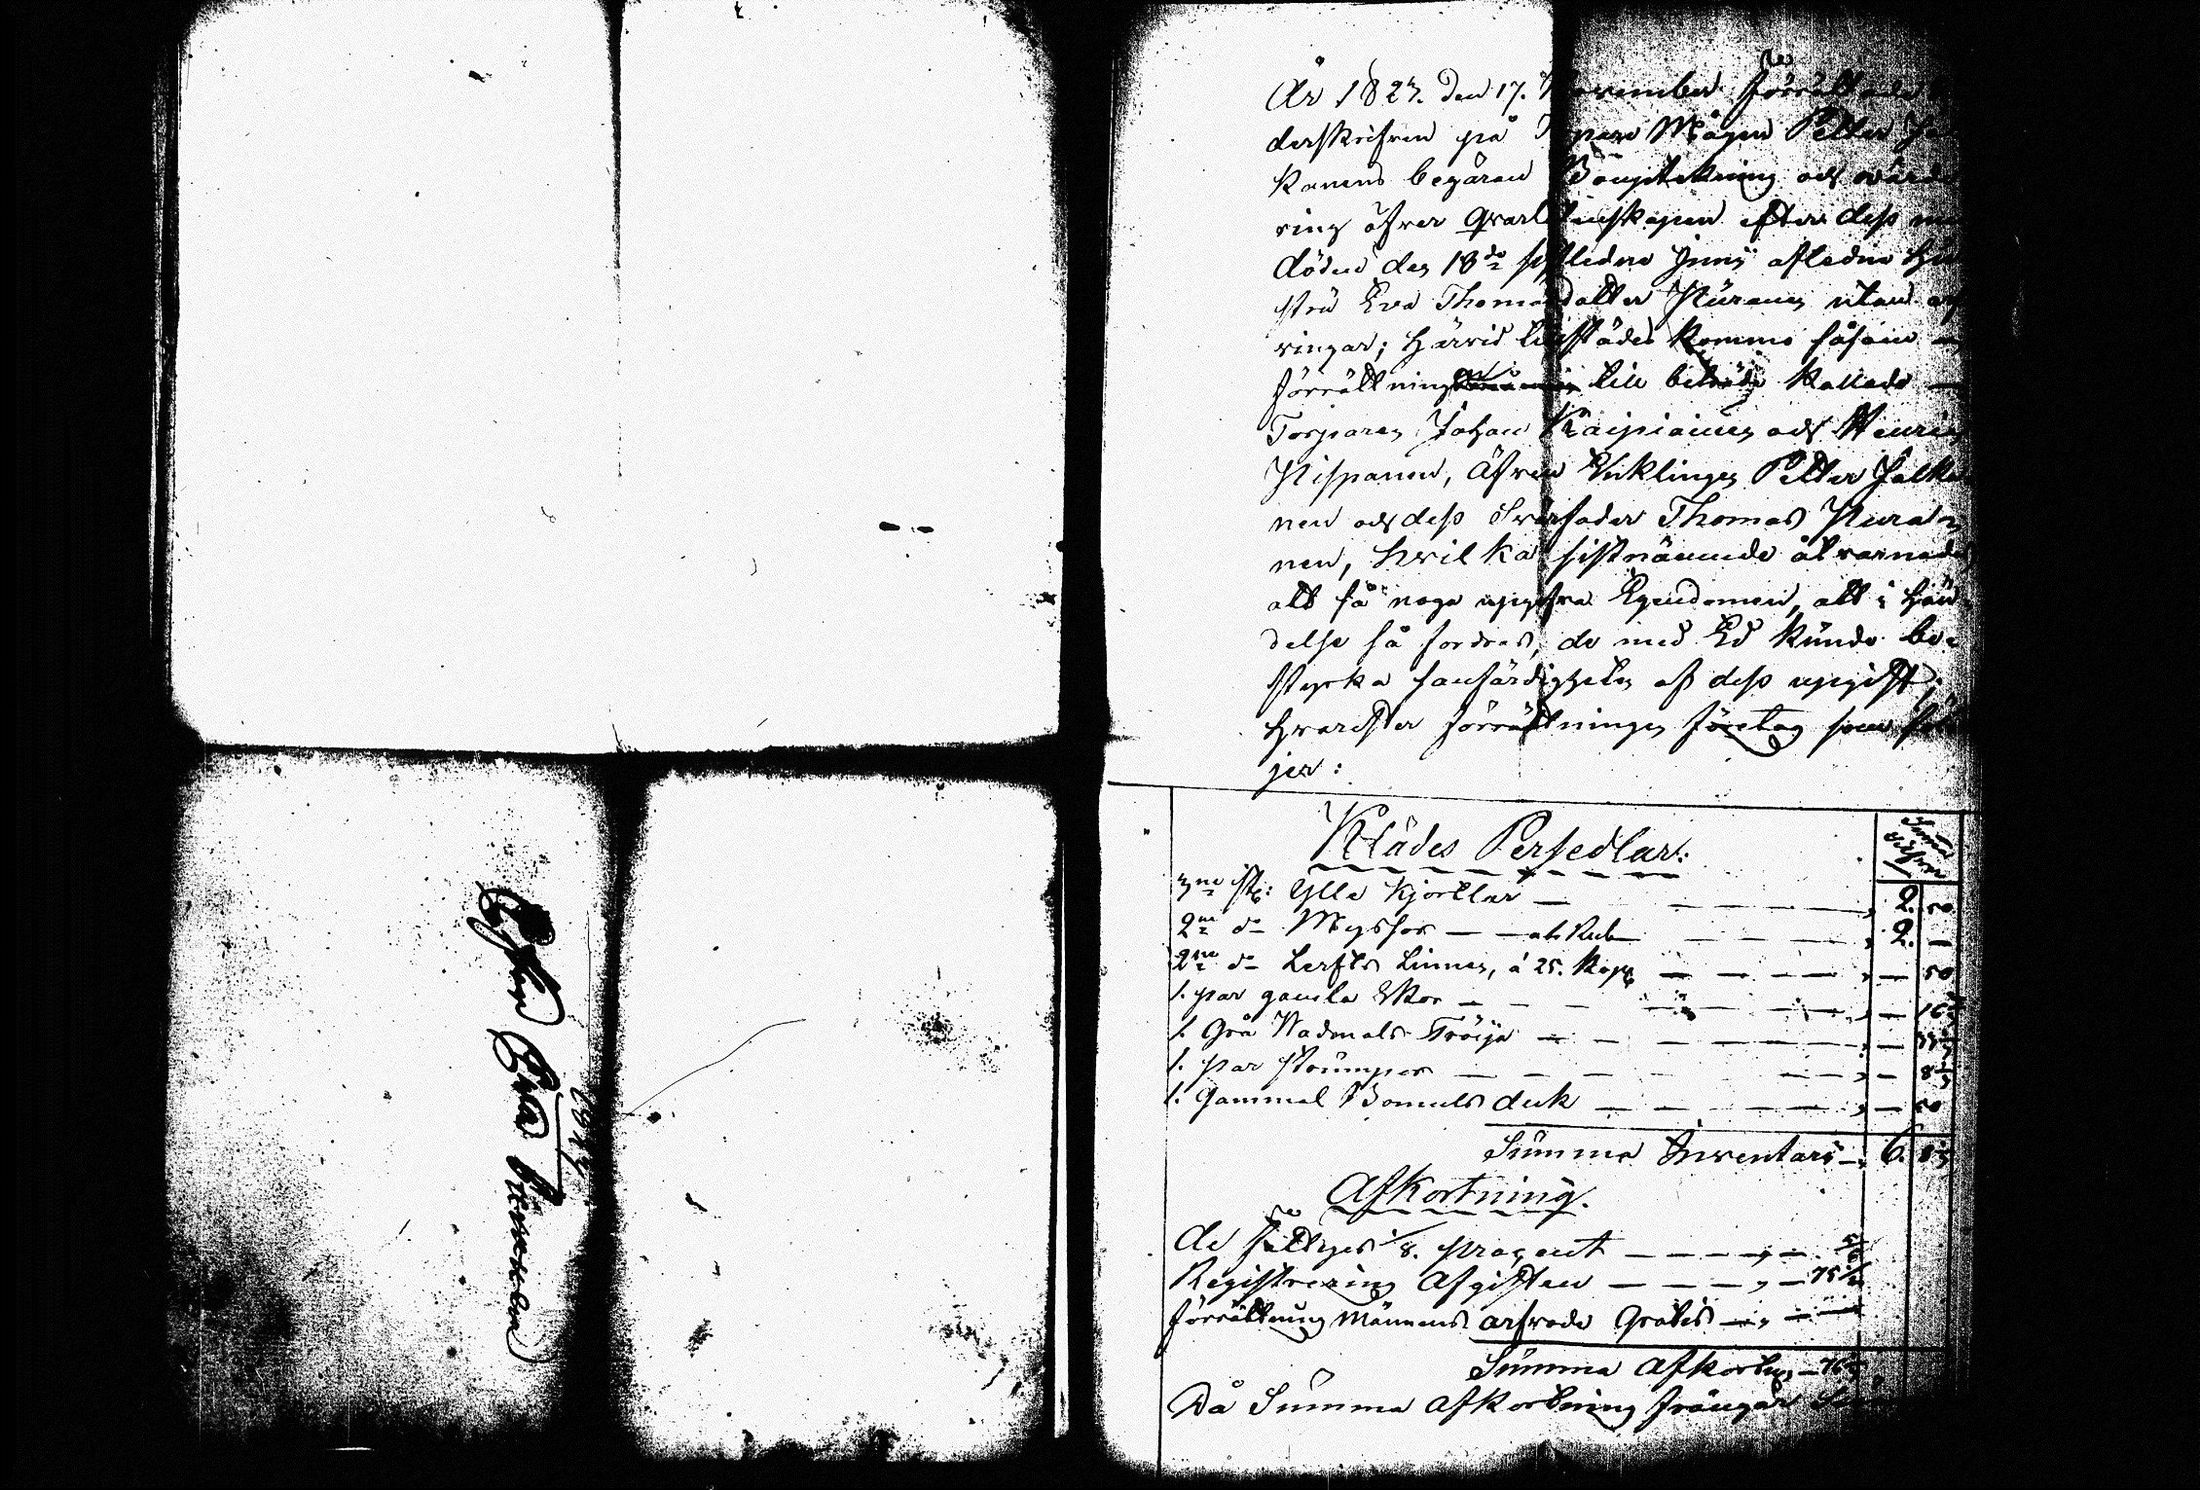 Efter Eva Nurannen
1827
År 1827. Den 17. November förrättade
derskrifven på Torpare Mågen Petter Jal
kanens begäran Bouptekning och värde
ring öfver Qvarlåtenskapen efter dess med
döden den 18de sistledne Junij afledne Hu
stru Eva Thomasdotter Nüranen utan arf
vingar; Härvid tillstädes kommo såsom
förrättnings till biträde kallade —
Torparen Johan Kaipiainen och Henric
Nisspanen, Äfven Enklingen Petter Jalka
nen och dess Svärfader Thomas Nura
nen, hvilka sistnämnde åtvarnade
att så noga uppgifva Egendomen, att i hän
delse så fordras, de med Ed kunde be-
styrka sanfärdigheten af dess uppgift,
hvarefter förrättningen företog som föl
jer:
Klädes Persedlar:
3ne st: Ylle Kjortlar — 2. 50
2ne do Mysfor — — at. Rub — 2. —
2ne do Lerfts Linnen, á 25. Kop — — 50
1. par gamla Skor — — 16
1. Grå Wadmals Tröija — — 33 1/3
1. par strumpor — — 8 1/3
1. Gammal Bomuls duk — — 50
Summa Inventari — 6. 8 1/3
Afkortning.
De Fattiges 1/8. procent — —
Registrering Afgiften — — 75 1/2
Förrättning Männens arfvode Gratis — —
Summa Afkortn — 76
Då Summa Afkortning frångår